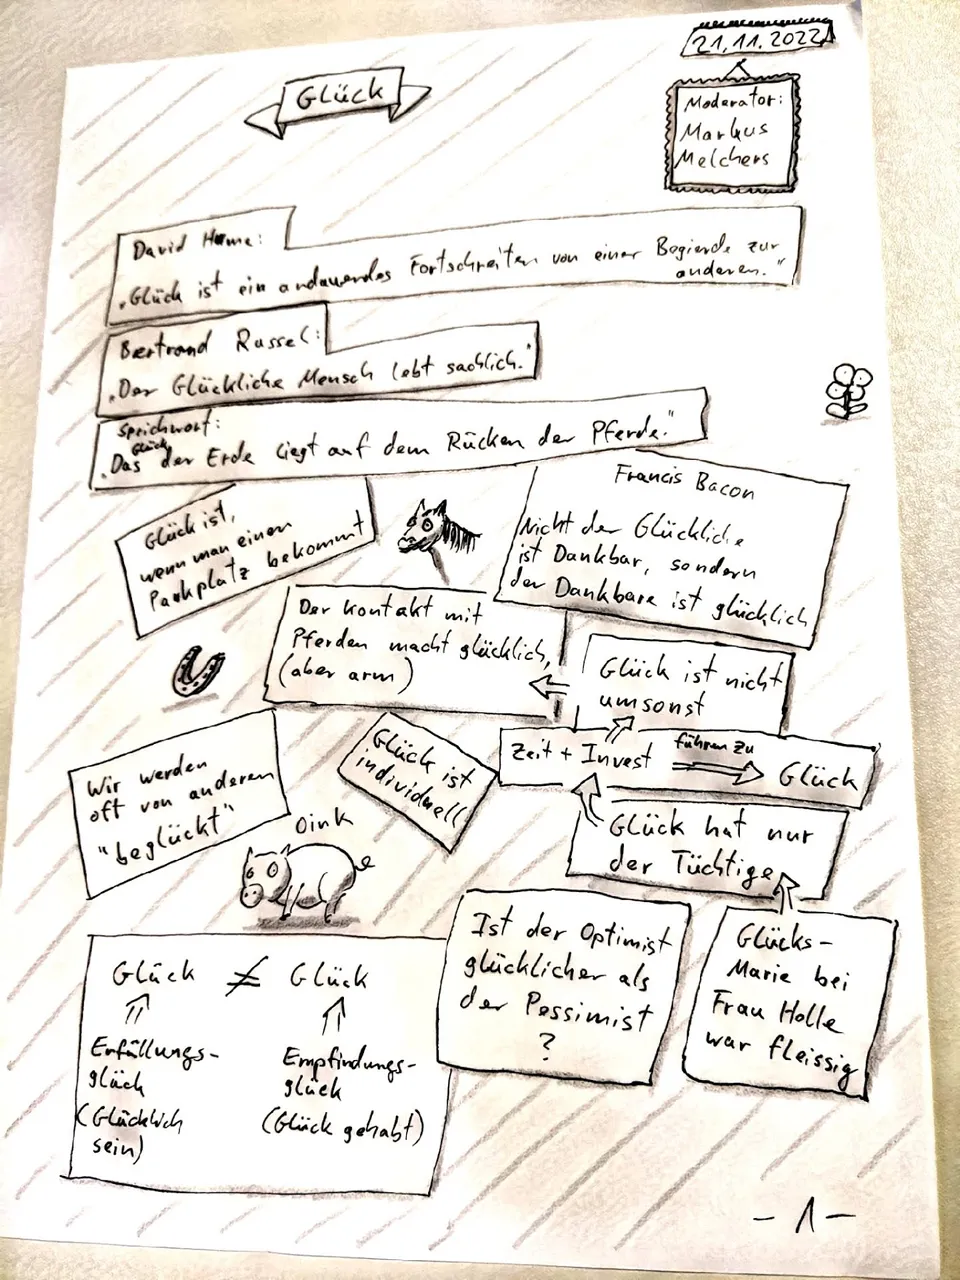 21.11.2022
Glück
Moderator:
Markus
Melchers
David Hume:
„Glück ist ein andauerndes Fortschreiten von einer Begierde zur
anderen."
Bertrand Russel:
„Der Glückliche Mensch lebt sachlich."
Sprichwort:
„Das Glück der Erde liegt auf dem Rücken der Pferde."
Glück ist,
wenn man einen
Parkplatz bekommt
Francis Bacon
Nicht der Glückliche
ist Dankbar, sondern
der Dankbare ist glücklich
Der Kontakt mit
Pferden macht glücklich,
(aber arm)
Glück ist nicht
umsonst
Zeit + Invest führen zu Glück
Glück ist
individuell
Wir werden
oft von anderen
"beglückt"
Oink
Glück hat nur
der Tüchtige
Glücks-
Marie bei
Frau Holle
war fleissig
Ist der Optimist
glücklicher als
der Pessimist
?
Glück ≠ Glück
Erfüllungs-
glück
(Glücklich
sein)
Empfindungs-
glück
(Glück gehabt)
- 1 -